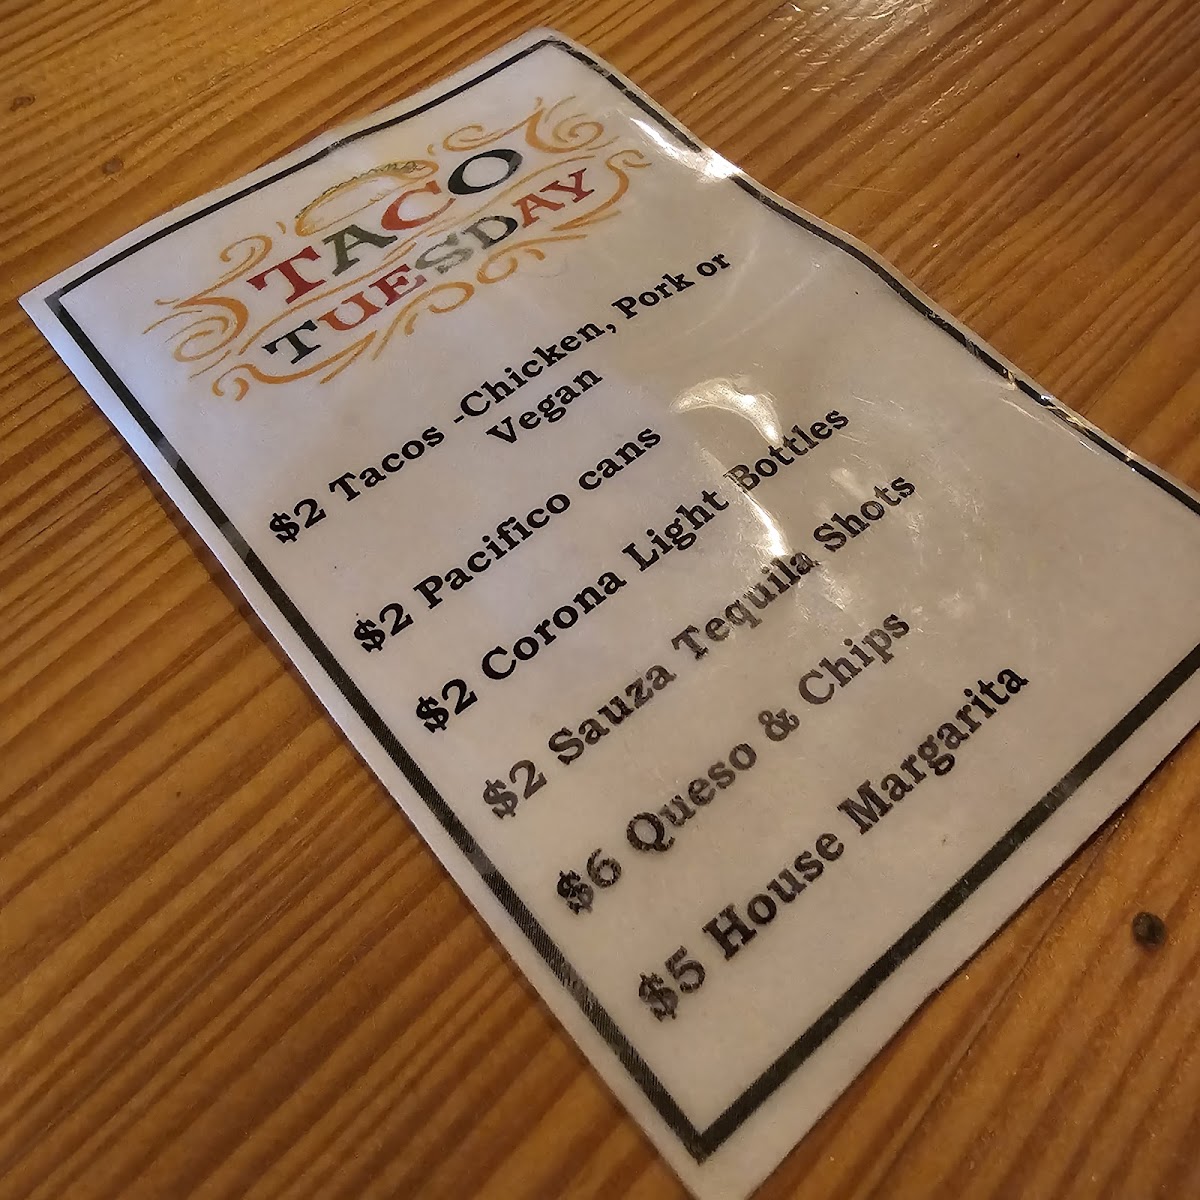 TACO
TUESDAY
$2 Tacos -Chicken, Pork or
Vegan
$2 Pacifico cans
$2 Corona Light Bottles
$2 Sauza Tequila Shots
$6 Queso & Chips
$5 House Margarita